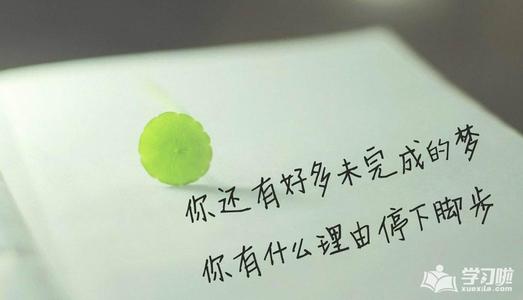 你还有好多未完成的梦
你有什么理由停下脚步
学习啦
xuexila.com